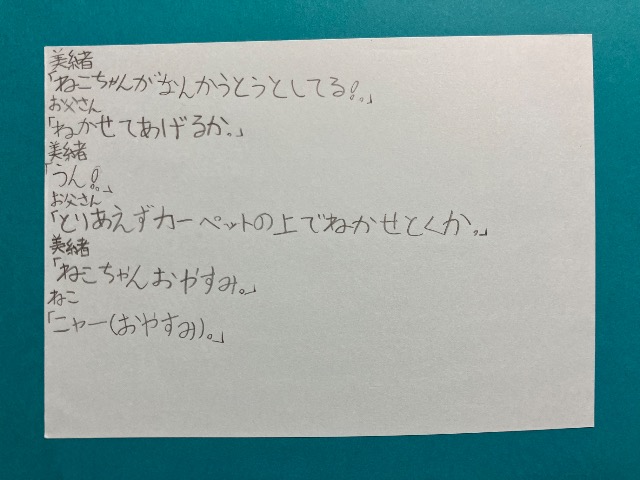 美緒
「ねこちゃんがなんかうとうとしてる!。」
お父さん
「ねかせてあげるか。」
美緒
「うん!。」
お父さん
「とりあえずカーペットの上でねかせとくか。」
美緒
「ねこちゃんおやすみ。」
ねこ
「ニャー(おやすみ)。」